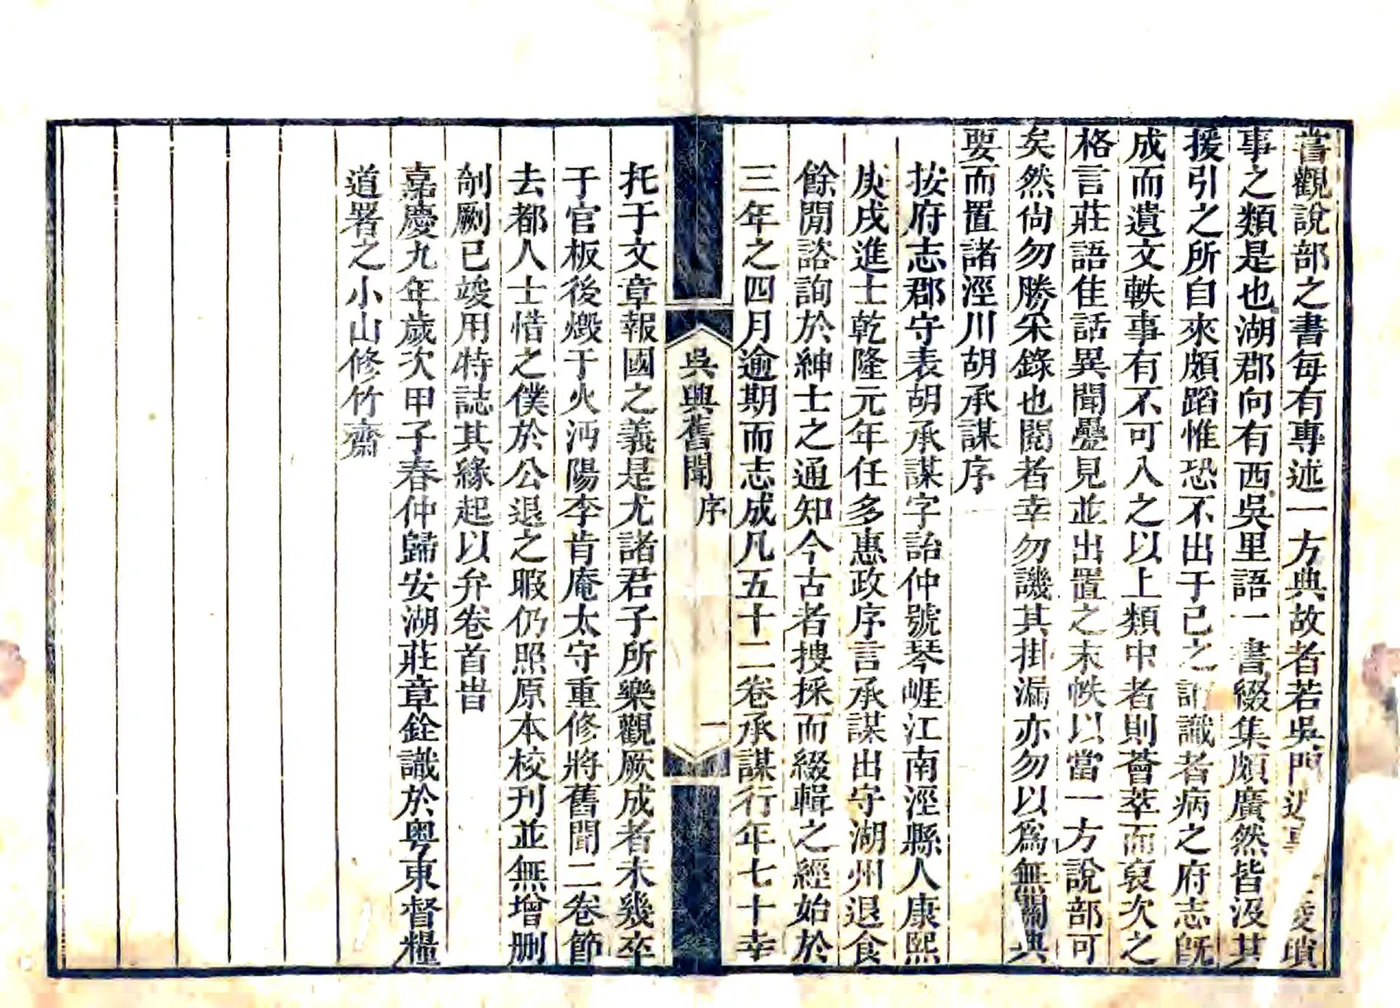 嘗觀說部之書每有專述一方典故者若吳門近事 陵瑣
事之類是也湖郡向有西吳里語一書綴集頗廣然皆沒其
援引之所自來頗蹈惟恐不出于己之 識者病之府志旣
成而遺文軼事有不可入之以上類中者則薈萃而裒次之
格言莊語佳話異聞疊見並出置之末帙以當一方說部可
矣然尙勿勝采錄也閱者幸勿譏其掛漏亦勿以爲無關典
要而置諸涇川胡承謀序
按府志郡守表胡承謀字詒仲號琴崕江南涇縣人康熙
庚戌進士乾隆元年任多惠政序言承謀出守湖州退食
餘閒諮詢於紳士之通知今古者捜採而綴輯之經始於
三年之四月逾期而志成凡五十二卷承謀行年七十幸
吳興舊聞 序 一
托于文章報國之義是尤諸君子所樂觀厥成者未幾卒
于官板後燬于火沔陽李肯庵太守重修將舊聞二卷節
去都人士惜之僕於公退之暇仍照原本校刊並無增删
剞劂已竣用特誌其緣起以弁卷首旹
嘉慶九年歲次甲子春仲歸安湖莊章銓識於粤東督糧
道署之小山修竹齋